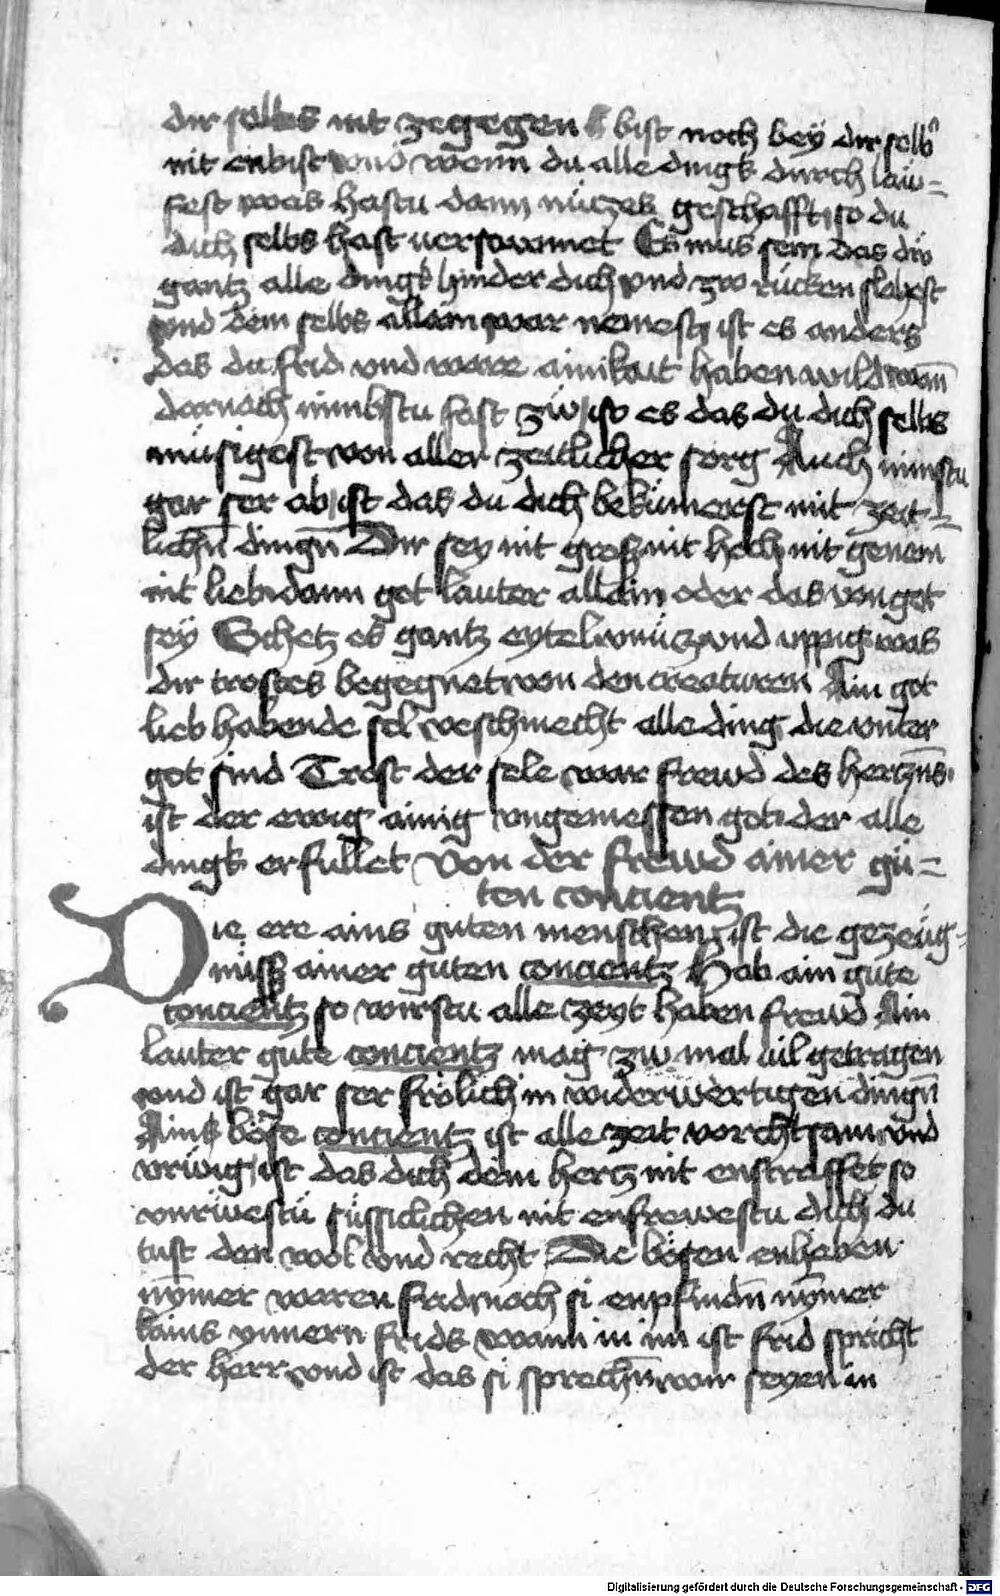 dir selbes nit zegegen bist noch bey dir selb
nit enbist vnd wenn du alle dingk durch lau=
fest was hastu dann nüczes geschafft so du
dich selbs hast versawmet Es mus sein das du
gantz alle dingk hinder dich vnd zw rücken slahest
vnd dein selbs allain war nemest ist es anders
das du frid vnd ware ainikait haben wild wann
darnach nimbstu fast zw ist es das du dich selbs
müsigest von aller zeitlicher sorg Auch nimstu
gar ser ab ist das du dich bekümerst mit zeit=
lichn̄ dingn̄ Dir sey nit gross nit hoch nit genem
nit lieb dann got lauter allain oder das von got
sey Schetz es gantz eytel vnücz vnd uppig was
dir trostes begegnet von den creaturen Ain got
lieb habende sel veschmecht alle ding die vnter
got sind Trost der sele war frewd des hertzn̄s
ist der ewig ainig vngemessen got der alle
dingk erfullet Von der frewd ainer gu=
ten concientz
Die ere ains guten menschen ist die gezeüg=
nüss ainer guten concientz Hab ain gute
concientz so wirstu alle zeyt haben frewd Ain
lauter gute concientz mag zw mal uil getragen
vnd ist gar ser frölich in widerwertigen dingn̄
Ains böse concientz ist alle zeit vorchtsam vnd
vrwig ist das dich dein hertz nit enstraffet so
vnrüestu süssiclichen nit enfrewestu dich du
tust den wol vnd recht Die bösen enheben
nȳmer waren frid noch si enpfindn̄ nȳmer
kains ynnern frids wann in im ist frid spricht
der herr vnd ist das si sprechn̄ wir seyen in
Digitalisierung gefördert durch die Deutsche Forschungsgemeinschaft - DFG